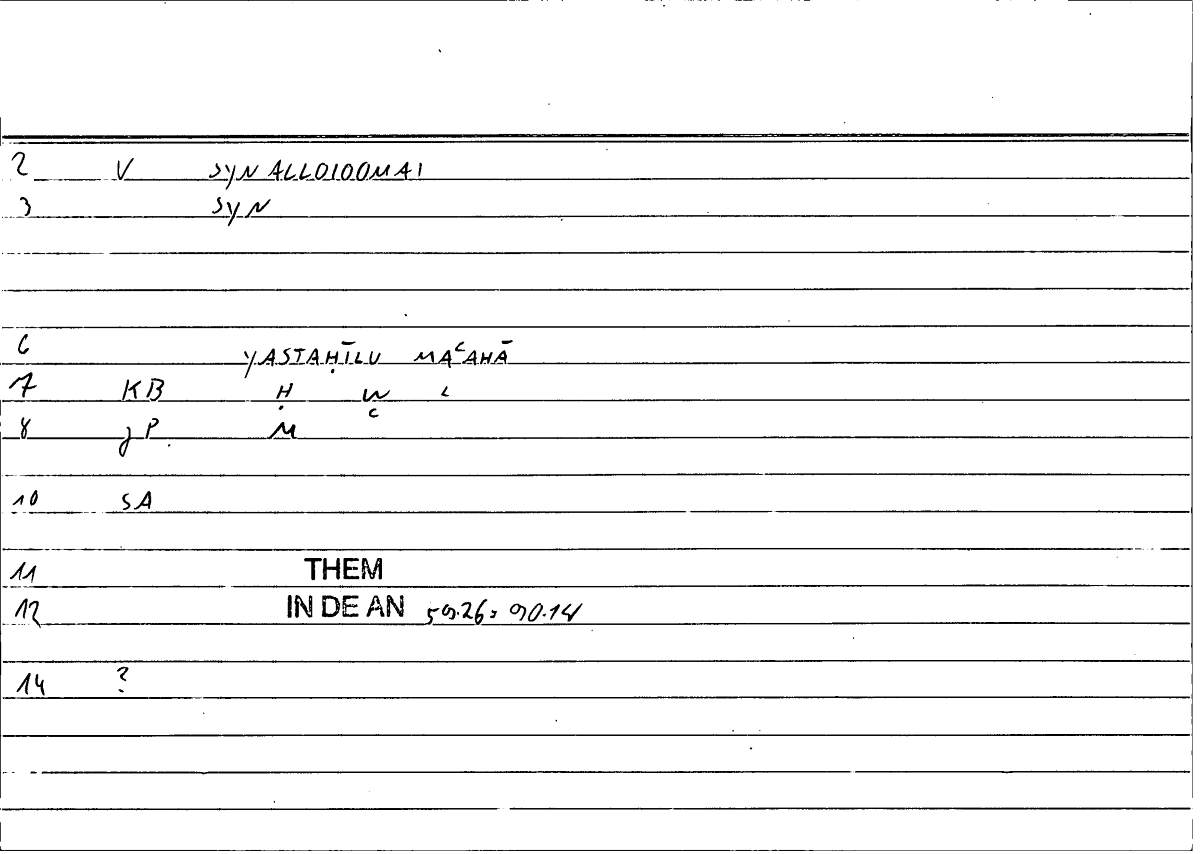 2 V SYNALLOIOOMAI
3 SYN
6 YASTAḤĪLU MAᶜAHĀ
7 KB Ḥ W L
8 JP. M
10 SA
11 THEM
12 IN DE AN 59.26; 90.14
14 ?